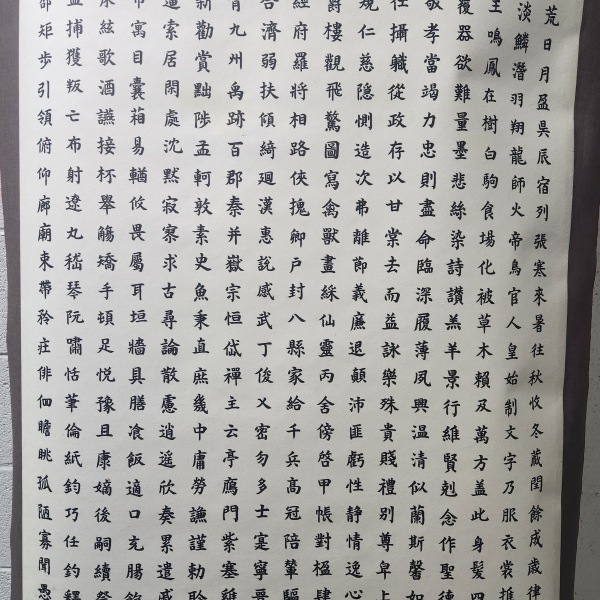 荒日月盈昃辰宿列張寒來暑往秋收冬藏閏餘成歲律
淡鱗潛羽翔龍師火帝鳥官人皇始制文字乃服衣裳推
王鳴鳳在樹白駒食場化被草木賴及萬方蓋此身髮四
覆器欲難量墨悲絲染詩讚羔羊景行維賢剋念作聖德
敬孝當竭力忠則盡命臨深履薄夙興溫清似蘭斯馨如
仕攝職從政存以甘棠去而益詠樂殊貴賤禮別尊卑上
規仁慈隱惻造次弗離節義廉退顛沛匪虧性靜情逸心
鬱樓觀飛驚圖寫禽獸畫綵仙靈丙舍傍啓甲帳對楹肆
經府羅將相路俠槐卿戶封八縣家給千兵高冠陪輦驅
合濟弱扶傾綺迴漢惠說感武丁俊乂密勿多士寔寧晉
青九州禹跡百郡秦并嶽宗恒岱禪主云亭鴈門紫塞雞
新勸賞黜陟孟軻敦素史魚秉直庶幾中庸勞謙謹勅聆
逼索居閑處沈默寂寥求古尋論散慮逍遙欣奏累遣慼
市寓目囊箱易輶攸畏屬耳垣牆具膳飡飯適口充腸飽
床絃歌酒讌接杯舉觴矯手頓足悅豫且康嫡後嗣續祭
盜捕獲叛亡布射遼丸嵇琴阮嘯恬筆倫紙鈞巧任釣釋
邵矩步引領俯仰廊廟束帶矜莊徘徊瞻眺孤陋寡聞愚